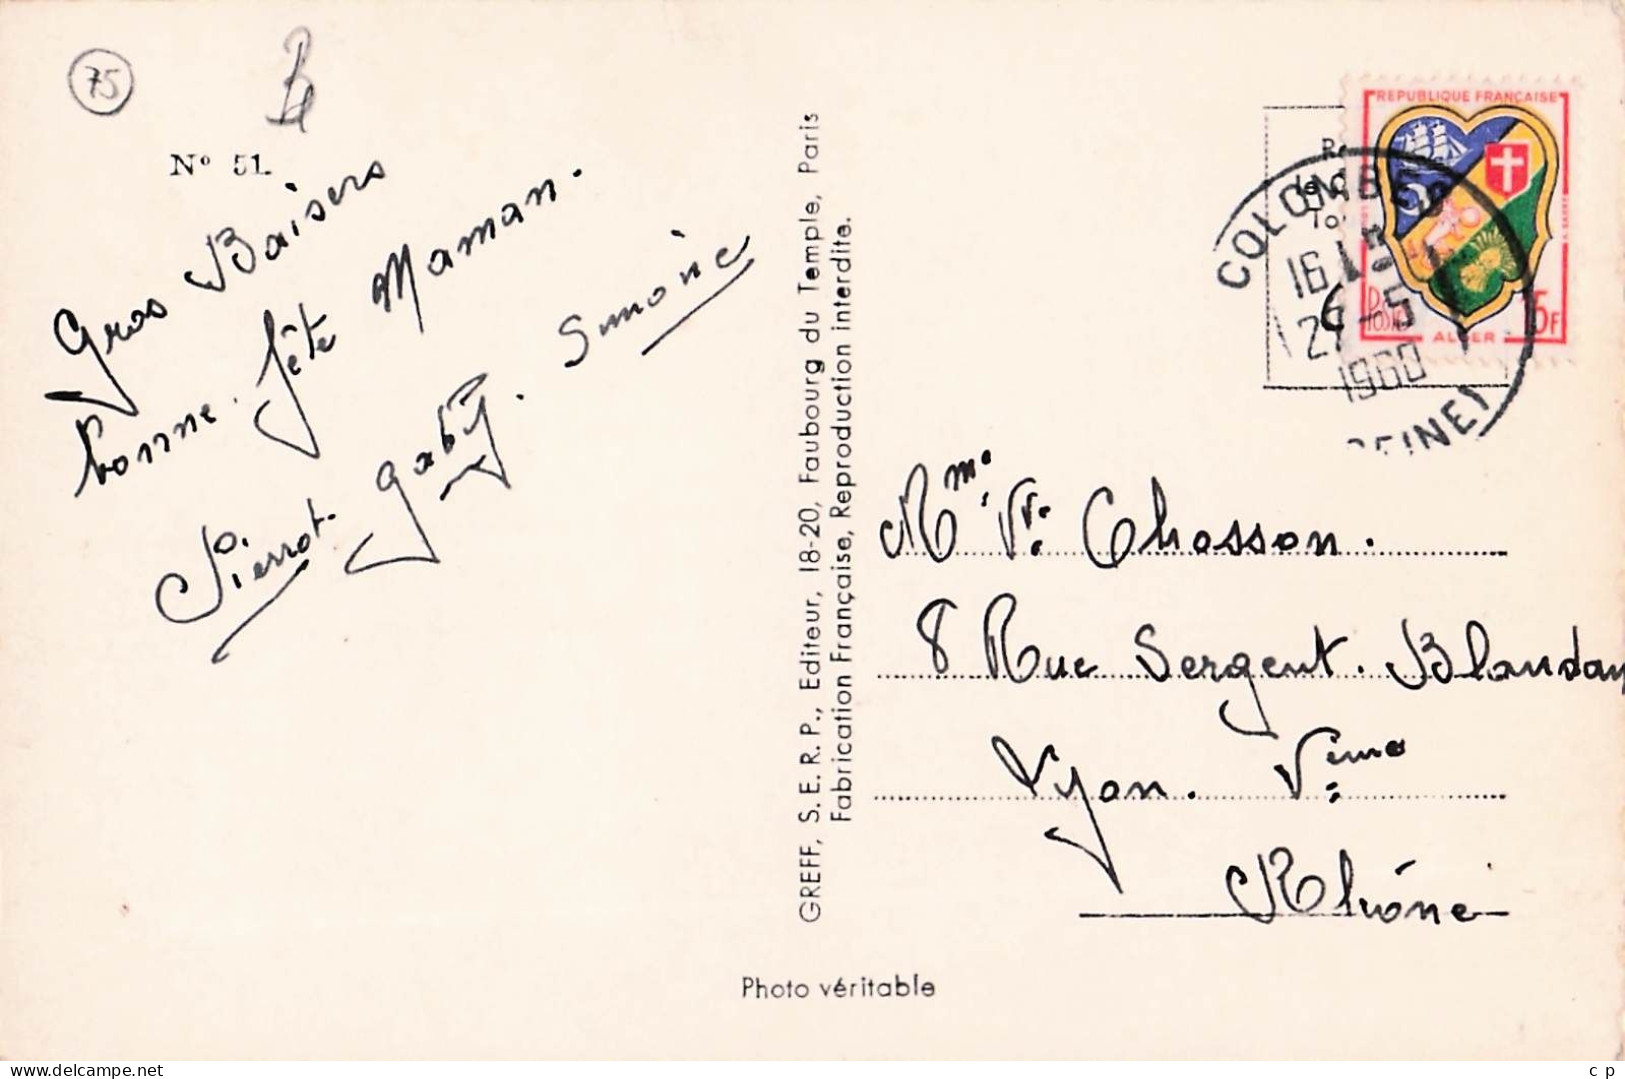 75
Nº 51.
Gros Baisers
bonne fête Maman.
Pierrot. Gaby. Simone
GREFF, S.E.R.P., Editeur, 18-20, Faubourg du Temple, Paris
Fabrication Française, Reproduction interdite.
Photo véritable
REPUBLIQUE FRANÇAISE
Postes
15F
ALGER
COLOMBES
16 H
27-5
1960
(SEINE)
Mme Vve Chosson.
8 Rue Sergent. Blandan
Lyon. Vème
Rhône
delcampe.net
c p